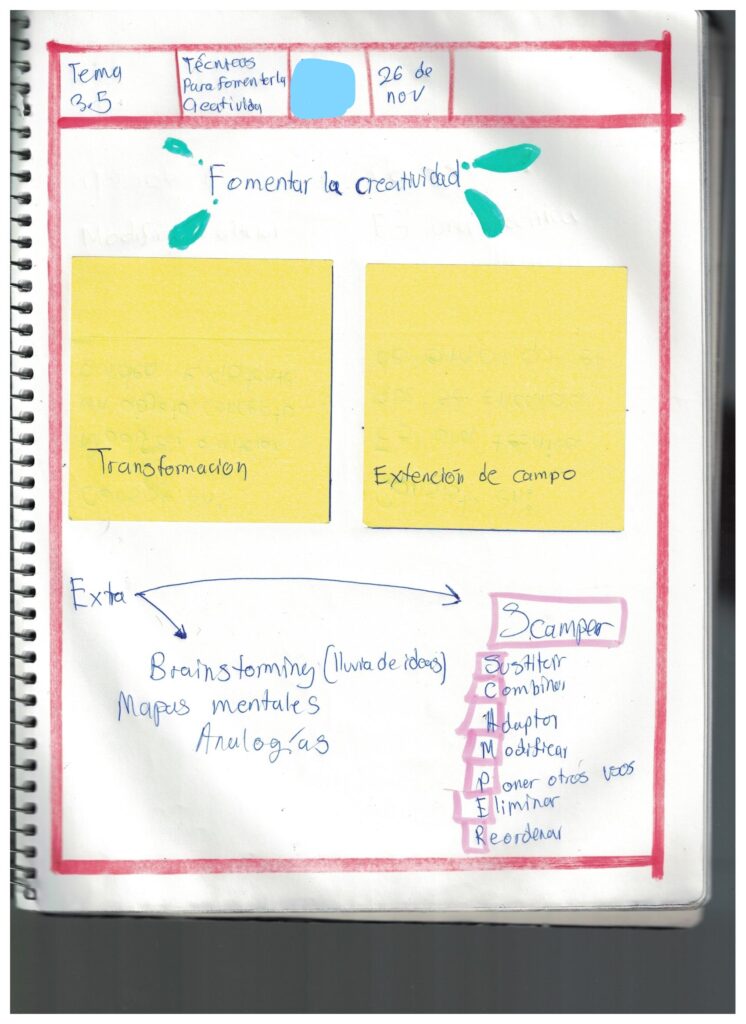 Tema
3.5
Técnicas
Para fomentar la
Creativida
26 de
nov
Fomentar la creatividad
Transformacion
Extención de campo
Extra
Scamper
Brainstorming (lluvia de ideas)
Mapas mentales
Analogías
Sustituir
Combinar
Adaptar
Modificar
Poner otros usos
Eliminar
Reordenar